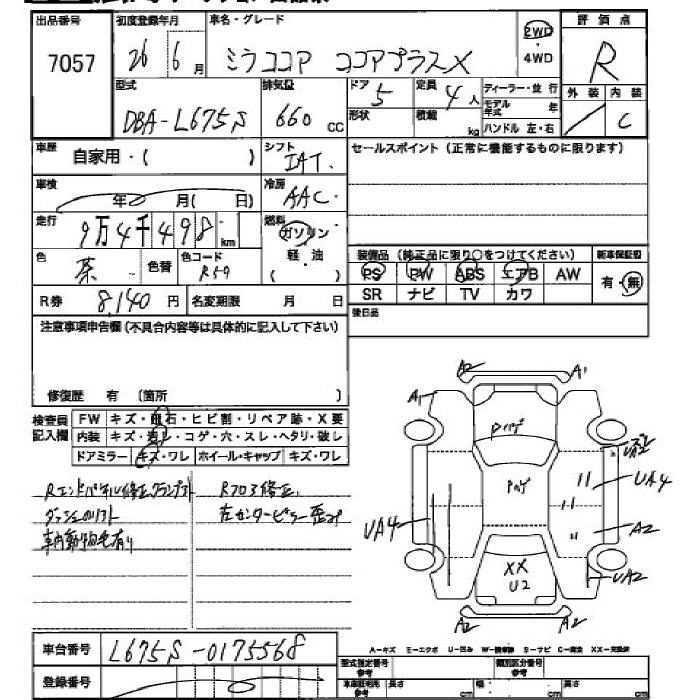 出品番号 初度登録年月 車名・グレード 評価点
7057 26 6月 ミラココア ココアプラスX 2WD・4WD R
型式 排気量 ドア 定員 ディーラー・並行 外装 内装
DBA-L675S 660cc 5 4人 モデル年式 年
形状 積載 kg ハンドル 左・右 C
車歴 自家用・( ) シフト IAT. セールスポイント(正常に機能するものに限ります)
車検 年 月(日) 冷房 AAC.
走行 9万4千498km 燃料 ガソリン
軽・油
装備品(純正品に限り○をつけてください) 新車保証書
色 茶 色替 色コード R59 ( )
PS PW ABS エアB AW 有・無
SR ナビ TV カワ
R券 8,140円 名変期限 月 日
後日品
注意事項申告欄(不具合内容等は具体的に記入して下さい)
修復歴 有 〔箇所 〕
検査員記入欄 FW キズ・飛石・ヒビ割・リペア跡・X要
内装 キズ・汚れ・コゲ・穴・スレ・ヘタリ・破レ
ドアミラー キズ・ワレ ホイール・キャップ キズ・ワレ
Rエンドパネル修正 R フロア修正
左センターピラー歪み
車内動物毛有り
A2 A1
A1
UA4 UA4
A2
XX
U2 UA2
A2 A2
車台番号 L675S-0175568
A-キズ E-エクボ U-凹み W-補修跡 S-サビ C-腐食 XX-交換済
登録番号
型式指定番号 参考 類別区分番号 参考
車庫証明用 参考 長さ cm 幅 cm 高さ cm